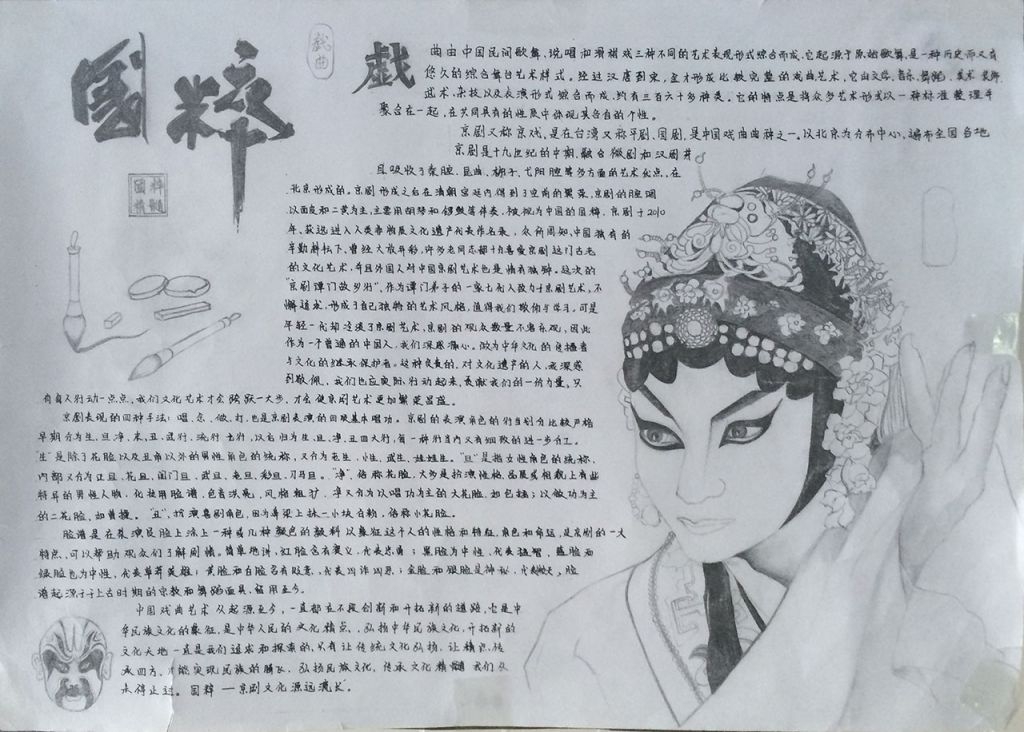 国粹
戏曲
国粹
精髓
戏
曲由中国民间歌舞、说唱和滑稽戏三种不同的艺术表现形式综合而成,它起源于原始歌舞,是一种历史而又有
悠久的综合舞台艺术样式。经过汉唐到宋、金才形成比较完整的戏曲艺术,它由文学、音乐、舞蹈、美术、
武术、杂技以及表演形式综合而成,约有三百六十多种类。它的特点是将众多艺术形式以一种标准整理并
聚合在一起,在共同具有的性质中体现其各自的个性。
京剧又称京戏,是在台湾又称平剧、国剧,是中国戏曲曲种之一。以北京为分布中心,遍布全国各地
京剧是十九世纪的中期,融合徽剧和汉剧并
且吸收了秦腔、昆曲、梆子、弋阳腔等多方面的艺术优点,在
北京形成的。京剧形成之后在清朝宫廷内得到了空前的繁荣,京剧的腔调
以西皮和二黄为主,主要用胡琴和锣鼓等伴奏,被视为中国的国粹,京剧于2010
年,获选进入人类非物质文化遗产代表作名录,众所周知,中国独有的
辛勤耕耘下,曾经大放异彩,许多老同志都十分喜爱京剧这门古老
的文化艺术,并且外国人对中国京剧艺术也是情有独钟。这次的
“京剧谭门故乡行”,作为谭门弟子的一家七代人致力于京剧艺术,不
懈追求,形成了自己独特的艺术风格,值得我们敬佩与学习,可是
年轻一代却淡漠了京剧艺术,京剧的观众数量不容乐观,因此
作为一个普通的中国人,我们深感痛心。做为中华文化的传播者
与文化的继承保护者,这种负责的,对文化遗产的人,我深感
到敬佩,我们也应实际行动起来,贡献我们的一份力量。只
有每人行动一点点,我们文化艺术才会跨跃一大步,才会使京剧艺术更加繁荣昌盛。
京剧表现的四种手法:唱、念、做、打,也是京剧表演的四项基本唱功。京剧的表演角色的行当划分比较严格
早期分为生、旦、净、末、丑、武行、流行七行,以后归为生、旦、净、丑四大行,每一种行当内又有细致的进一步分工。
“生”是除了花脸以及丑角以外的男性角色的统称,又分为老生、小生、武生、娃娃生。“旦”是指女性角色的统称,
内部又分为正旦、花旦、闺门旦、武旦、老旦、彩旦、刀马旦。“净”,俗称花脸,大多是扮演性格、品质或相貌上有些
特异的男性人物,化妆用脸谱,色音洪亮,风格粗犷。净又分为以唱功为主的大花脸,如包拯;以做功为主
的二花脸,如曹操。“丑”,扮演喜剧角色,因为鼻梁上抹一小块白粉,俗称小花脸。
脸谱是在表演员脸上涂上一种或几种颜色的颜料以象征这个人的性格和特征,角色和命运,是京剧的一大
特点,可以帮助观众们了解剧情。简单地讲,红脸含有褒义,代表忠勇;黑脸为中性,代表猛智,蓝脸和
绿脸也为中性,代表草莽英雄;黄脸和白脸含有贬意,代表凶诈凶恶;金脸和银脸是神秘,代表神妖。脸
谱起源于上古时期的宗教和舞蹈面具,留用至今。
中国戏曲艺术从起源至今,一直都在不段创新和开拓新的道路,它是中
华民族文化的象征,是中华人民的文化精点,弘扬中华民族文化,开拓新的
文化天地一直是我们追求和探索的,只有让传统文化弘扬,让精点传
承四方,才能实现民族的腾飞,弘扬民族文化,传承文化精髓我们从
未停止过。国粹——京剧文化源远流长。